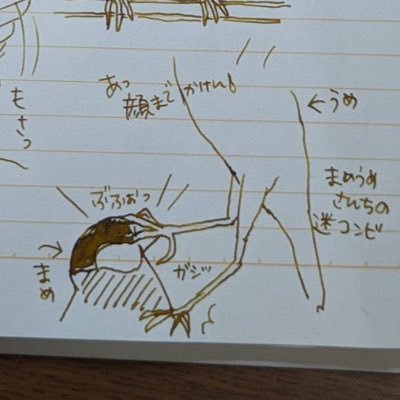 あっ
顔までかけん
←うめ
まめうめ
さんちの
迷コンビ
もさっ
ぶふぉっ
→
まめ
ガシッ